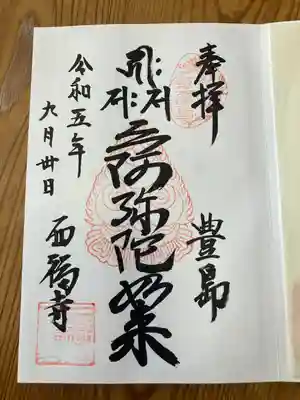 奉拝
豊島
阿弥陀如来
令和五年
九月卅日
西福寺